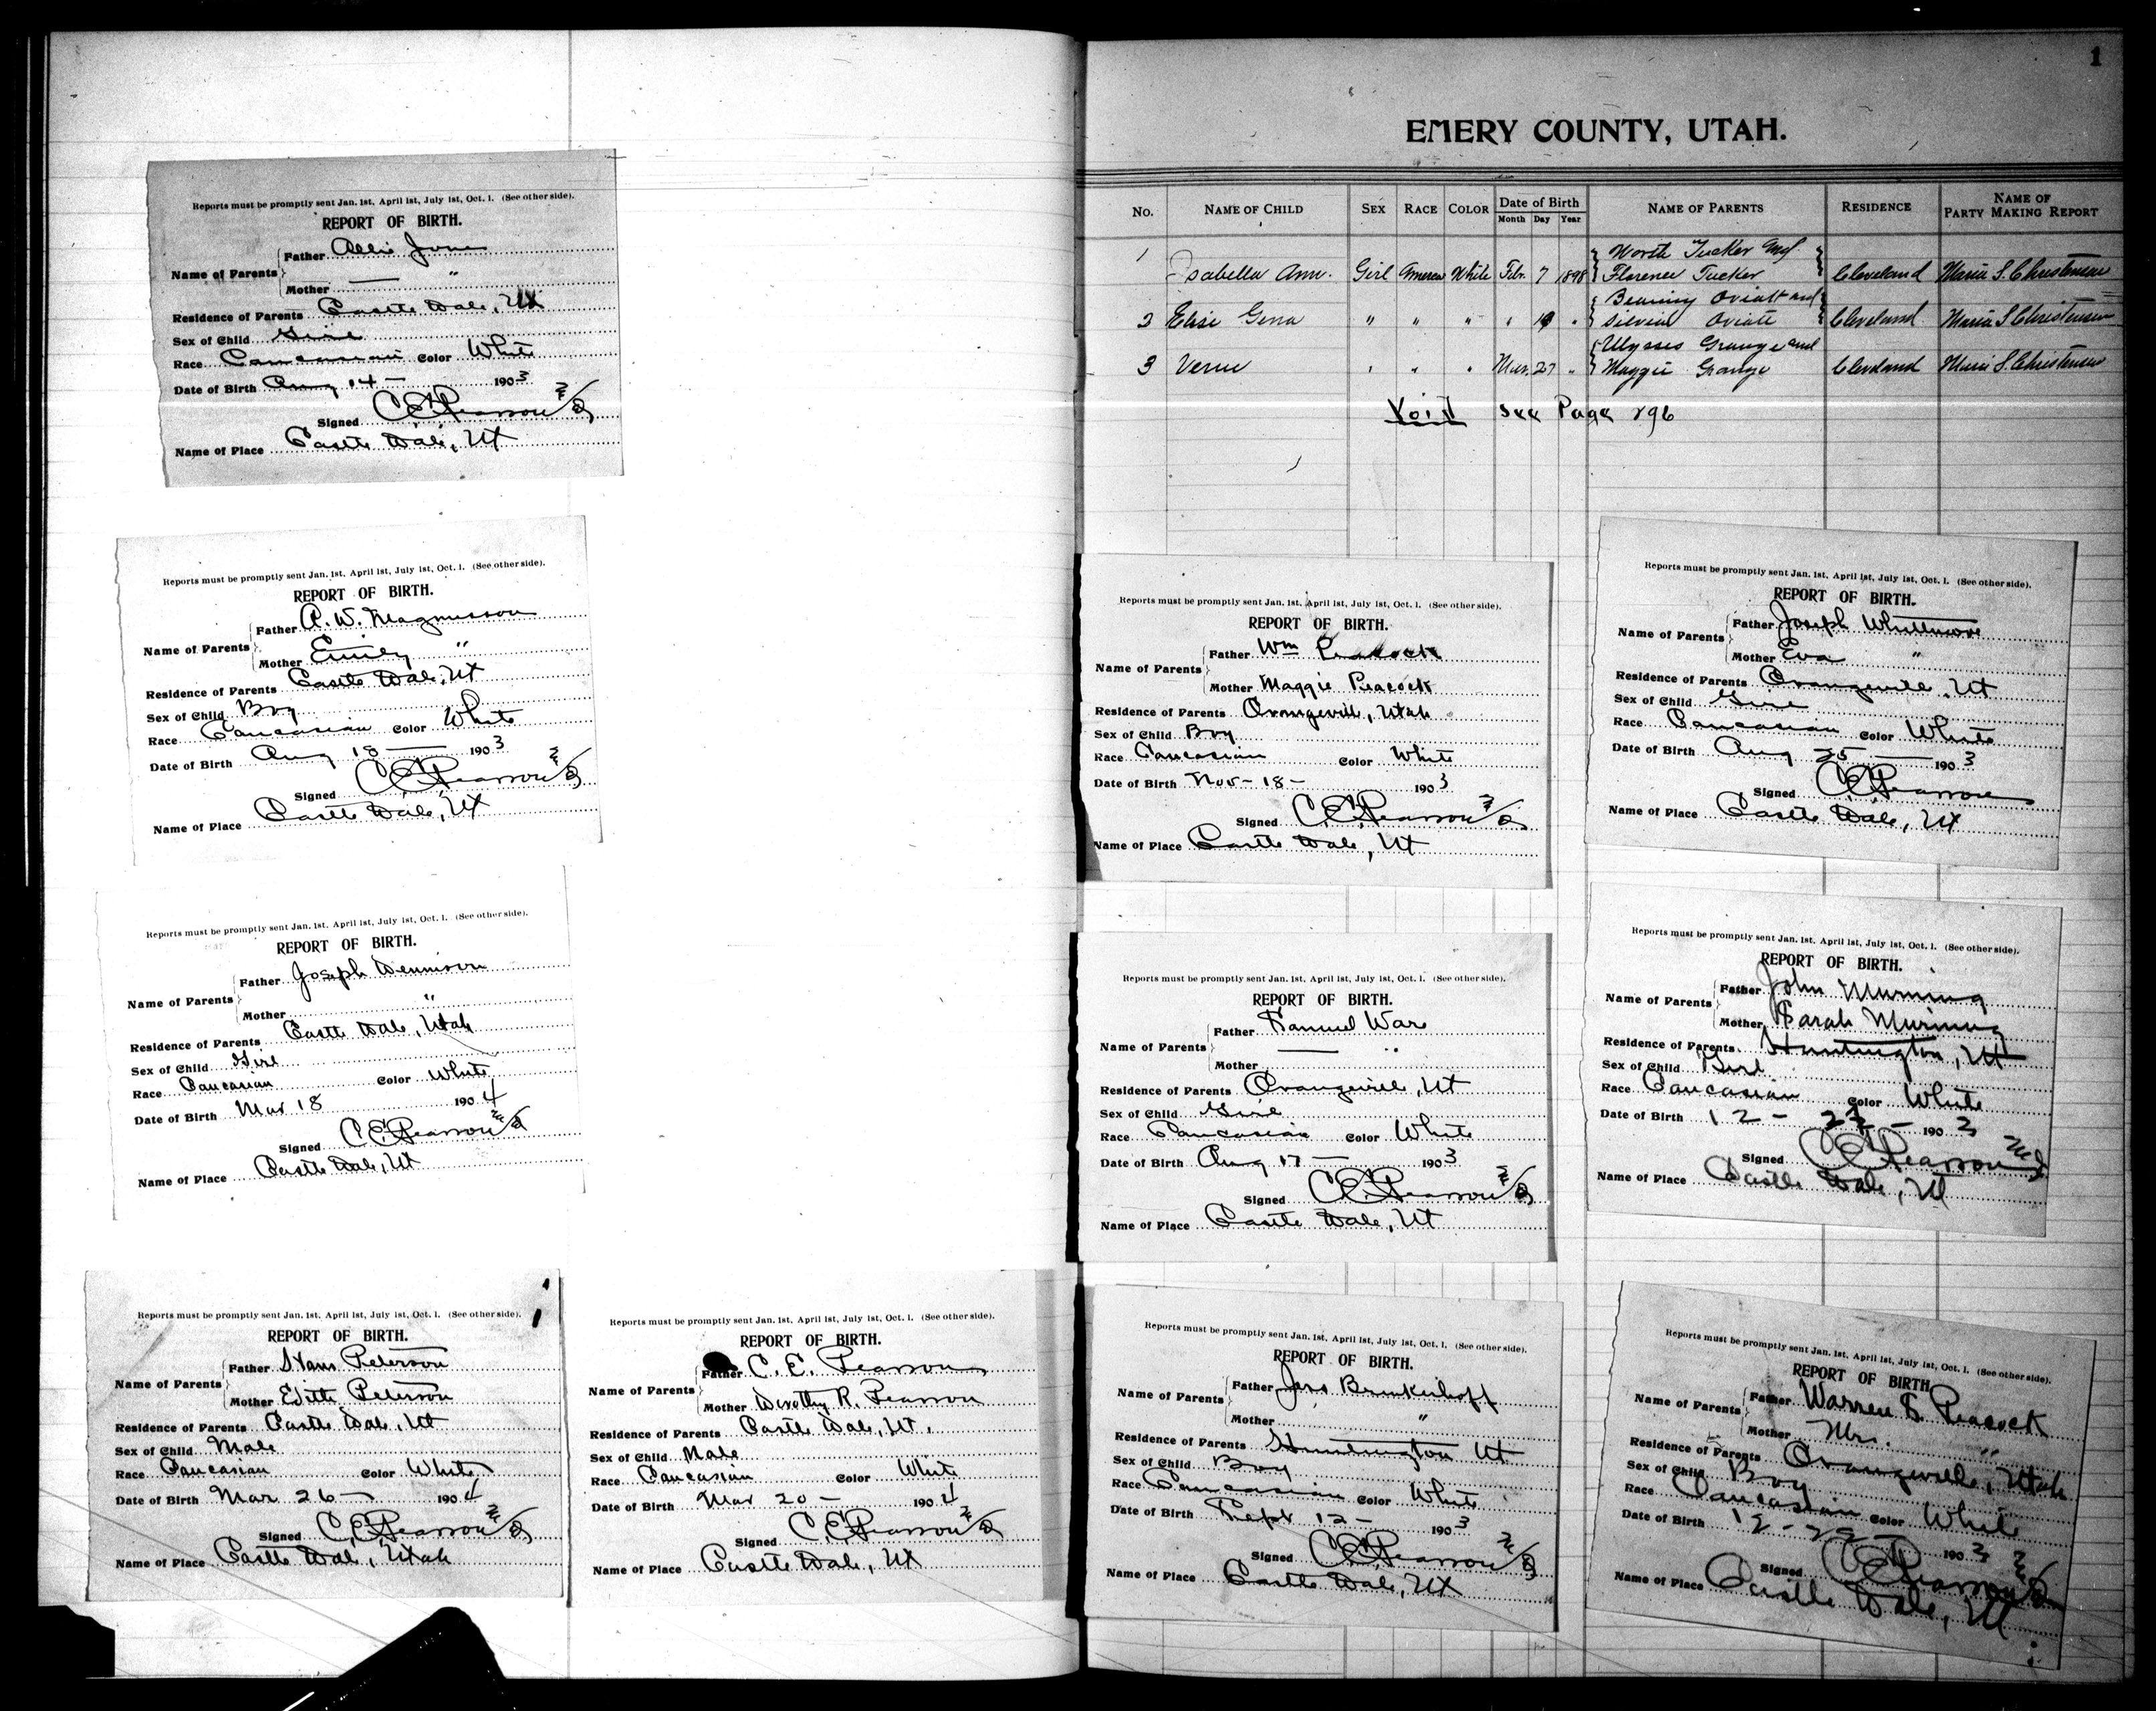 Reports must be promptly sent Jan. 1st, April 1st, July 1st, Oct. 1. (See other side).
REPORT OF BIRTH.
Father Allie Jones
Name of Parents
Mother — "
Residence of Parents Castle Dale, Ut
Sex of Child Girl
Race Caucasian Color White
Date of Birth Aug 14 — 1903
Signed C E Pearson MD
Name of Place Castle Dale, Ut
Reports must be promptly sent Jan. 1st, April 1st, July 1st, Oct. 1. (See other side).
REPORT OF BIRTH.
Father A. W. Magnusson
Name of Parents
Mother Emily "
Residence of Parents Castle Dale, Ut
Sex of Child Boy
Race Caucasian Color White
Date of Birth Aug 18 — 1903
Signed C E Pearson MD
Name of Place Castle Dale, Ut
Reports must be promptly sent Jan. 1st, April 1st, July 1st, Oct. 1. (See other side).
REPORT OF BIRTH.
Father Joseph Dennison
Name of Parents
Mother "
Residence of Parents Castle Dale, Utah
Sex of Child Girl
Race Caucasian Color White
Date of Birth Mar 18 1904
Signed C E Pearson MD
Name of Place Castle Dale, Ut
Reports must be promptly sent Jan. 1st, April 1st, July 1st, Oct. 1. (See other side).
REPORT OF BIRTH.
Father Hans Peterson
Name of Parents
Mother Edith Peterson
Residence of Parents Castle Dale, Ut
Sex of Child Male
Race Caucasian Color White
Date of Birth Mar 26 — 1904
Signed C. E. Pearson MD
Name of Place Castle Dale, Utah
Reports must be promptly sent Jan. 1st, April 1st, July 1st, Oct. 1. (See other side).
REPORT OF BIRTH.
Father C. E. Pearson
Name of Parents
Mother Dorothy R. Pearson
Residence of Parents Castle Dale, Ut.
Sex of Child Male
Race Caucasian Color White
Date of Birth Mar 20 — 1904
Signed C. E. Pearson MD
Name of Place Castle Dale, Ut
1
EMERY COUNTY, UTAH.
NO. NAME OF CHILD SEX RACE COLOR Date of Birth Month Day Year NAME OF PARENTS RESIDENCE NAME OF PARTY MAKING REPORT
1 Isabella Ann. Girl American White Feb. 7 1898 Worth Tucker and Florence Tucker Cleveland Maria S. Christensen
2 Elsie Gena " " " " 19 " Oviatt and Silvia Oviatt Cleveland Maria S Christensen
3 Verne " " " Mar. 27 " Ulysses Grange and Maggie Grange Cleveland Maria S. Christensen
Void see Page 296
Reports must be promptly sent Jan. 1st, April 1st, July 1st, Oct. 1. (See other side).
REPORT OF BIRTH.
Father Wm Peacock
Name of Parents
Mother Maggie Peacock
Residence of Parents Orangeville, Utah
Sex of Child Boy
Race Caucasian Color White
Date of Birth Nov - 18 - 1903
Signed C. E. Pearson MD
Name of Place Castle Dale, Ut
Reports must be promptly sent Jan. 1st, April 1st, July 1st, Oct. 1. (See other side).
REPORT OF BIRTH.
Father Joseph Whittmore
Name of Parents
Mother Eva "
Residence of Parents Orangeville, Ut
Sex of Child Girl
Race Caucasian Color White
Date of Birth Aug 25 — 1903
Signed C E Pearson
Name of Place Castle Dale, Ut
Reports must be promptly sent Jan. 1st, April 1st, July 1st, Oct. 1. (See other side).
REPORT OF BIRTH.
Father Samuel Ware
Name of Parents
Mother — "
Residence of Parents Orangeville, Ut
Sex of Child Girl
Race Caucasian Color White
Date of Birth Aug 17 — 1903
Signed C. E. Pearson MD
Name of Place Castle Dale, Ut
Reports must be promptly sent Jan. 1st, April 1st, July 1st, Oct. 1. (See other side).
REPORT OF BIRTH.
Father John
Name of Parents
Mother Sarah
Residence of Parents Huntington, Ut
Sex of Child Girl
Race Caucasian Color White
Date of Birth 12 - 1903
Signed C E Pearson MD
Name of Place Castle Dale, Ut
Reports must be promptly sent Jan. 1st, April 1st, July 1st, Oct. 1. (See other side).
REPORT OF BIRTH.
Father Jess Brinkerhoff
Name of Parents
Mother "
Residence of Parents Huntington Ut
Sex of Child Boy
Race Caucasian Color White
Date of Birth Sept 12 — 1903
Signed C E Pearson MD
Name of Place Castle Dale, Ut
Reports must be promptly sent Jan. 1st, April 1st, July 1st, Oct. 1. (See other side).
REPORT OF BIRTH.
Father Warren S. Peacock
Name of Parents
Mother Mrs. "
Residence of Parents Orangeville, Utah
Sex of Child Boy
Race Caucasian Color White
Date of Birth 12 - 29 — 1903
Signed C E Pearson MD
Name of Place Castle Dale, Ut